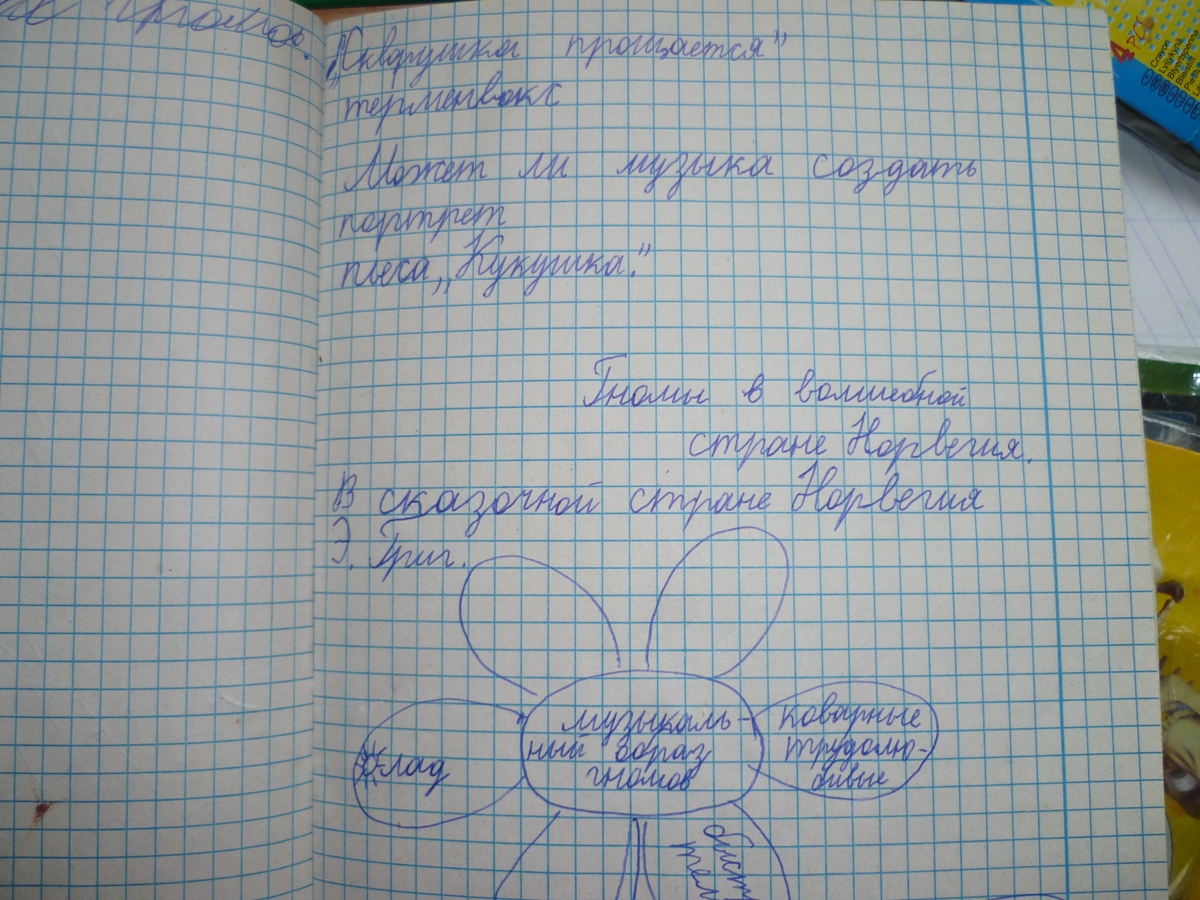 „Скворушка прощается”
терменвокс
Может ли музыка создать
портрет
пьеса „Кукушка.”
Гномы в волшебной
стране Норвегия.
В сказочной стране Норвегия
Э. Григ.
музыкаль-
ный образ
гномов
коварные
трудолю-
бивые
лад
быст
тем